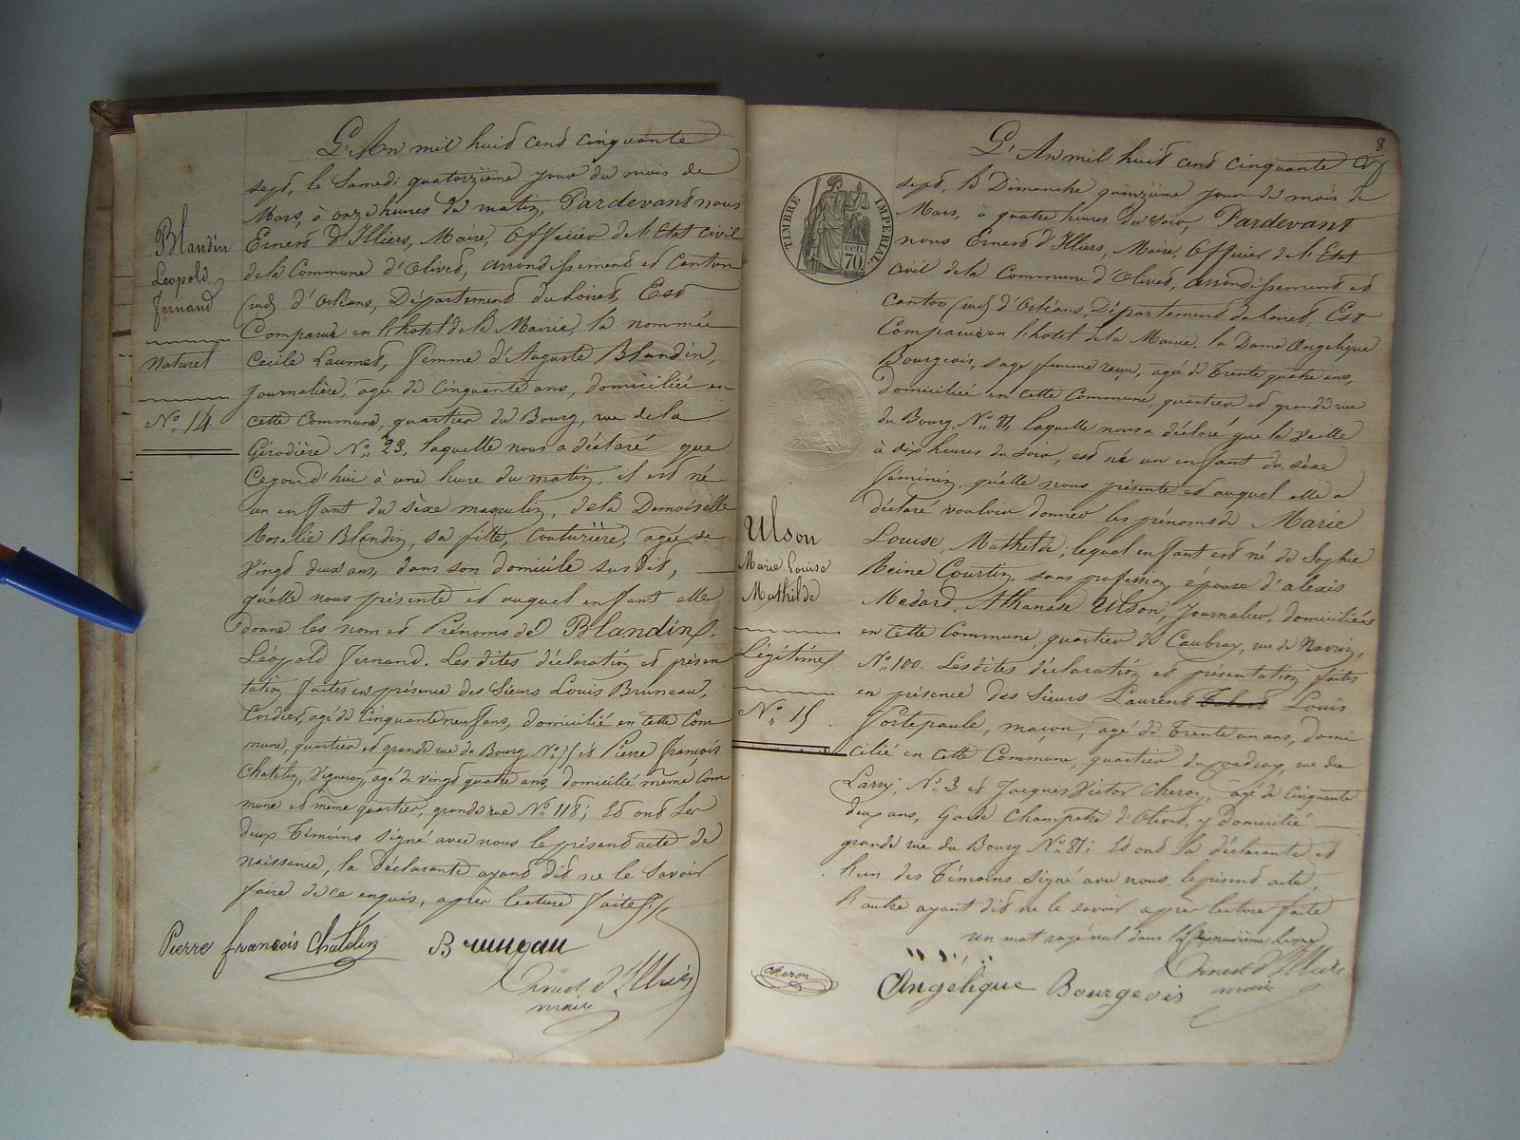 L'An mil huit cent cinquante
sept, le Samedi quatorzième jour du mois de
Mars, à onze heures du matin, Pardevant nous
Ernest d'Illiers, Maire, Officier de l'Etat civil
de la Commune d'Olivet, arrondissement et Canton
Sud d'Orléans, Département du Loiret, Est
Comparue en l'hôtel de la Mairie, la nommée
Cecile Laumet, femme d'Auguste Blandin,
journalière, agée de Cinquante ans, domiciliée en
cette Commune, quartier du Bourg, rue de la
Gérodière No. 23, laquelle nous a déclaré que
Cejourd'hui à une heure du matin, il est né
un enfant du sèxe masculin, de la Demoiselle
Rosalie Blandin, sa fille, Couturière, agée de
Vingt deux ans, dans son domicile susdit,
qu'elle nous présente et auquel enfant elle
donne les nom et Prénoms de Blandin
Léopold Fernand. Les dites déclaration et présen
tation faites en présence des Sieurs Louis Bruneau,
Cordier, agé de Cinquante neuf ans, domicilié en cette Com
mune, quartier et grande rue du Bourg No. 15 et Pierre François
Chatelin, Vigneron, agé de vingt quatre ans, domicilié même Com
mune et même quartier, grande rue No. 118; Et ont les
deux Témoins signé avec nous le présent acte de
naissance, la Déclarante ayant dit ne le Savoir
faire de ce enquis, après lecture faite
Pierre françois Chatelin Bruneau
Ernest d'Illiers
maire
Blandin
Léopold
Fernand
Naturel
No. 14
8
L'An mil huit cent cinquante
sept, le Dimanche quinzième jour du mois de
Mars, à quatre heures du soir, Pardevant
nous Ernest d'Illiers, Maire, Officier de l'Etat
civil de la Commune d'Olivet, arrondissement et
canton Sud d'Orléans, Département du Loiret, Est
Comparue en l'hôtel de la Mairie, la Dame Angelique
Bourgeois, sage femme reçue, agée de Trente quatre ans,
domiciliée en cette Commune quartier et grande rue
du Bourg, No. 11, laquelle nous a déclaré que la Veille
à dix heures du soir, est né un enfant du sèxe
féminin, qu'elle nous présente et auquel elle a
déclaré vouloir donner les prénoms de Marie
Louise, Mathilde, lequel enfant est né de Sophie
Reine Courtin, sans profession épouse d'alexis
Medard, Athanase Ulson, journalier, domiciliés
en Cette Commune, quartier de Caubray, rue de
No. 100. Les dites déclaration et présentation faites
en présence des Sieurs Laurent Louis
Portepaule, maçon, agé de Trente un ans, domi
cilié en cette Commune, quartier du rue du
Larry, No. 3 et Jacques Victor Cheron, agé de Cinquante
deux ans, Garde Champêtre d'Olivet, y domicilié
grande rue du Bourg No. 81; Et ont la déclarante et
l'un des Témoins signé avec nous le présent acte,
l'autre ayant dit ne le savoir après lecture faite
un mot rayé nul dans la ligne
Cheron Angélique Bourgeois
Ernest d'Illiers
maire
TIMBRE IMPERIAL
CEN.
70
Ulson
Marie Louise
Mathilde
Légitime
No. 15